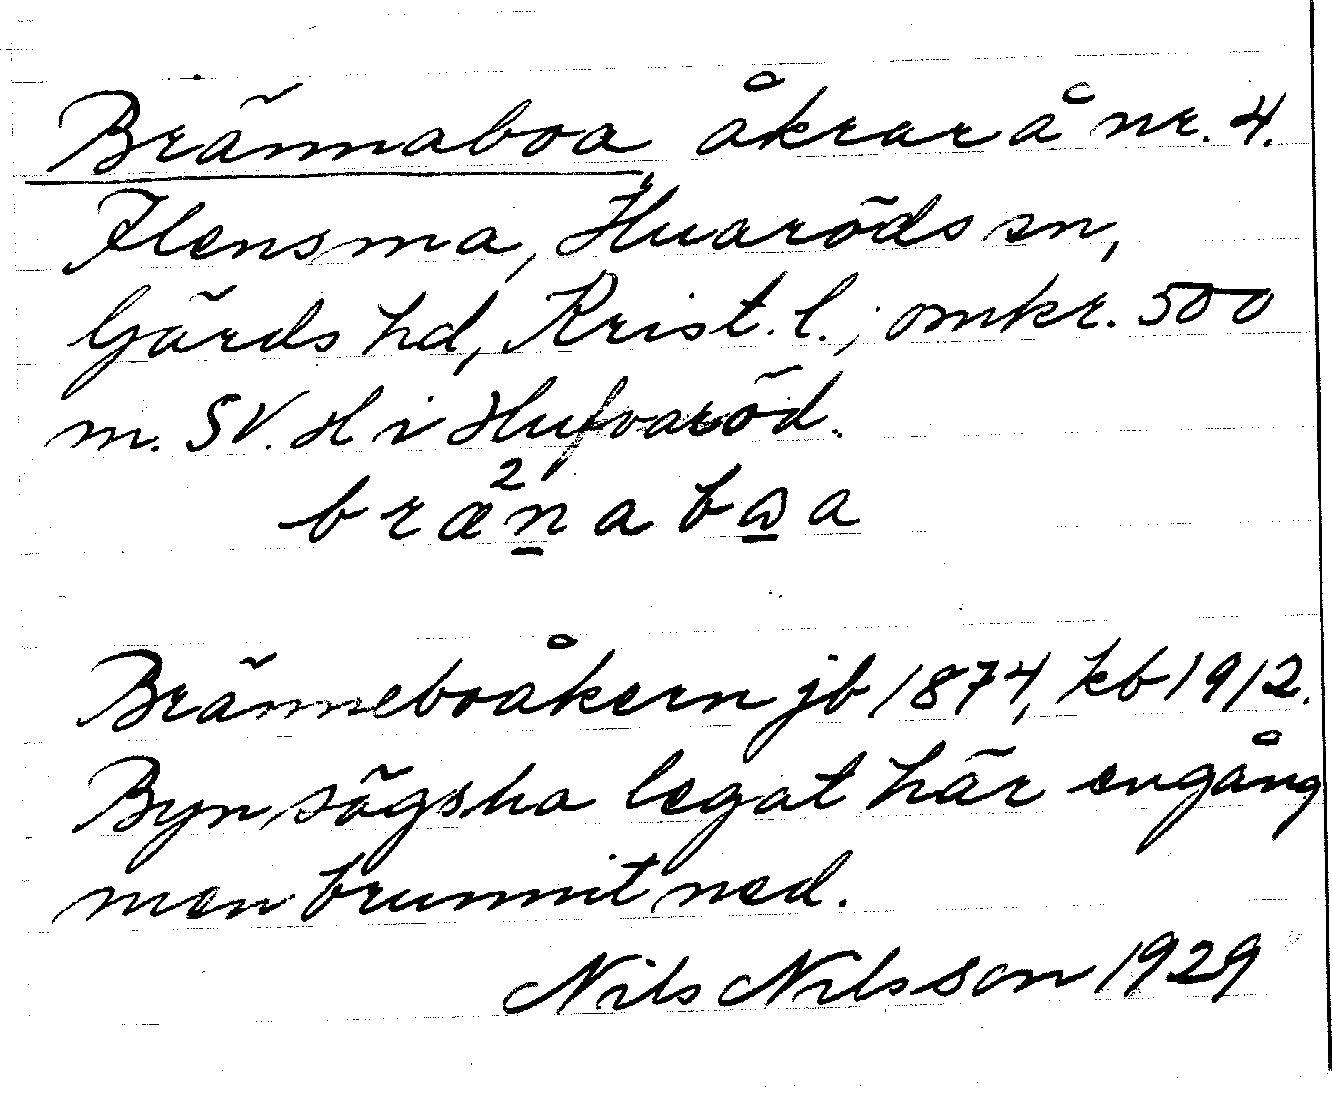 Brännaboa, åkrar å nr. 4.
Flensma, Huaröds sn,
Gärds hd, Krist. l.; omkr. 500
m. SV. H i Hufvaröd.
bræ²n̲abɷ̲a
Bränneboåkern jb 1874, kb 1912.
Byn sägs ha legat här engång
men brunnit ned.
Nils Nilsson 1929